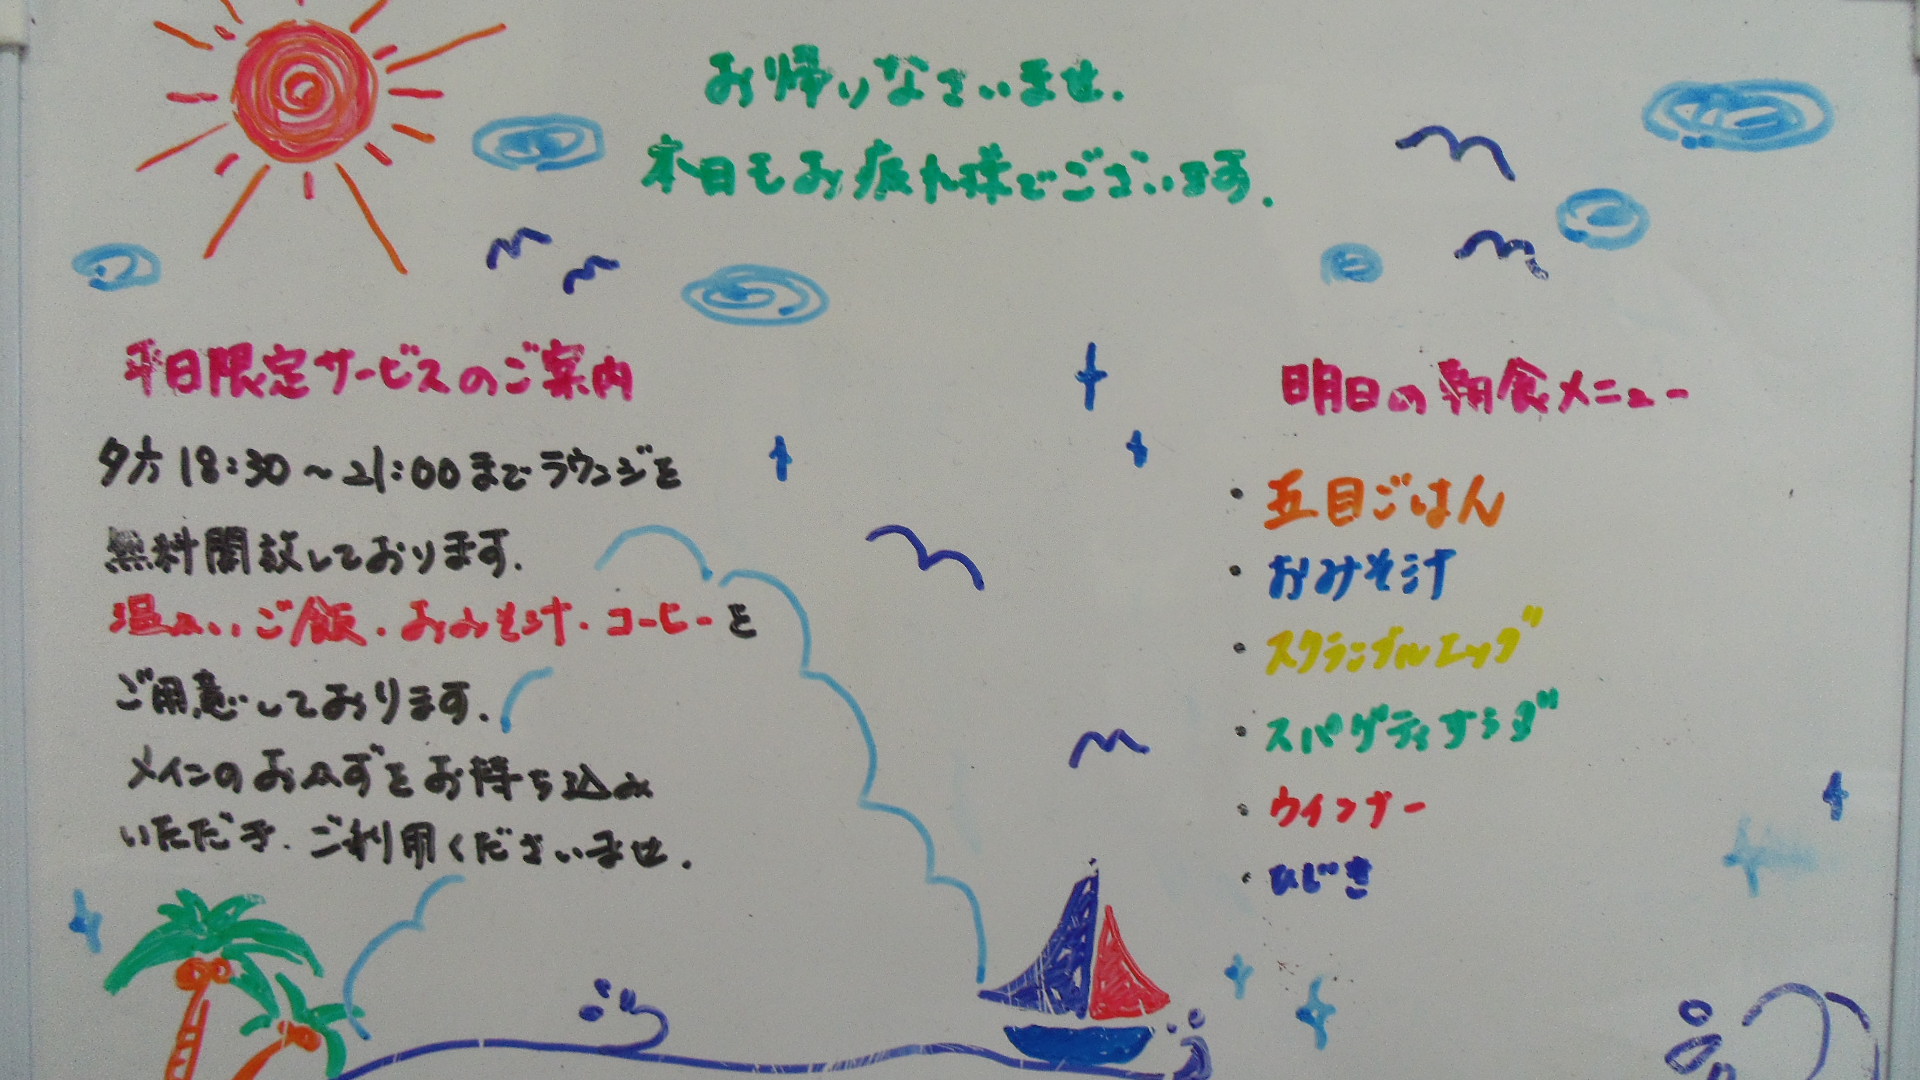 お帰りなさいませ.
本日もお疲れ様でございます.
平日限定サービスのご案内
夕方18:30～21:00までラウンジを
無料開放しております.
温かいご飯・おみそ汁・コーヒーを
ご用意しております.
メインのおかずをお持ち込み
いただき.ご利用くださいませ.
明日の朝食メニュー
・五目ごはん
・おみそ汁
・スクランブルエッグ
・スパゲティサラダ
・ウインナー
・ひじき